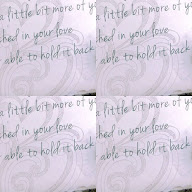 a little bit more of yo
hed in your love
able to hold it back
a little bit more of yo
hed in your love
able to hold it back
a little bit more of yo
hed in your love
able to hold it back
a little bit more of yo
hed in your love
able to hold it back